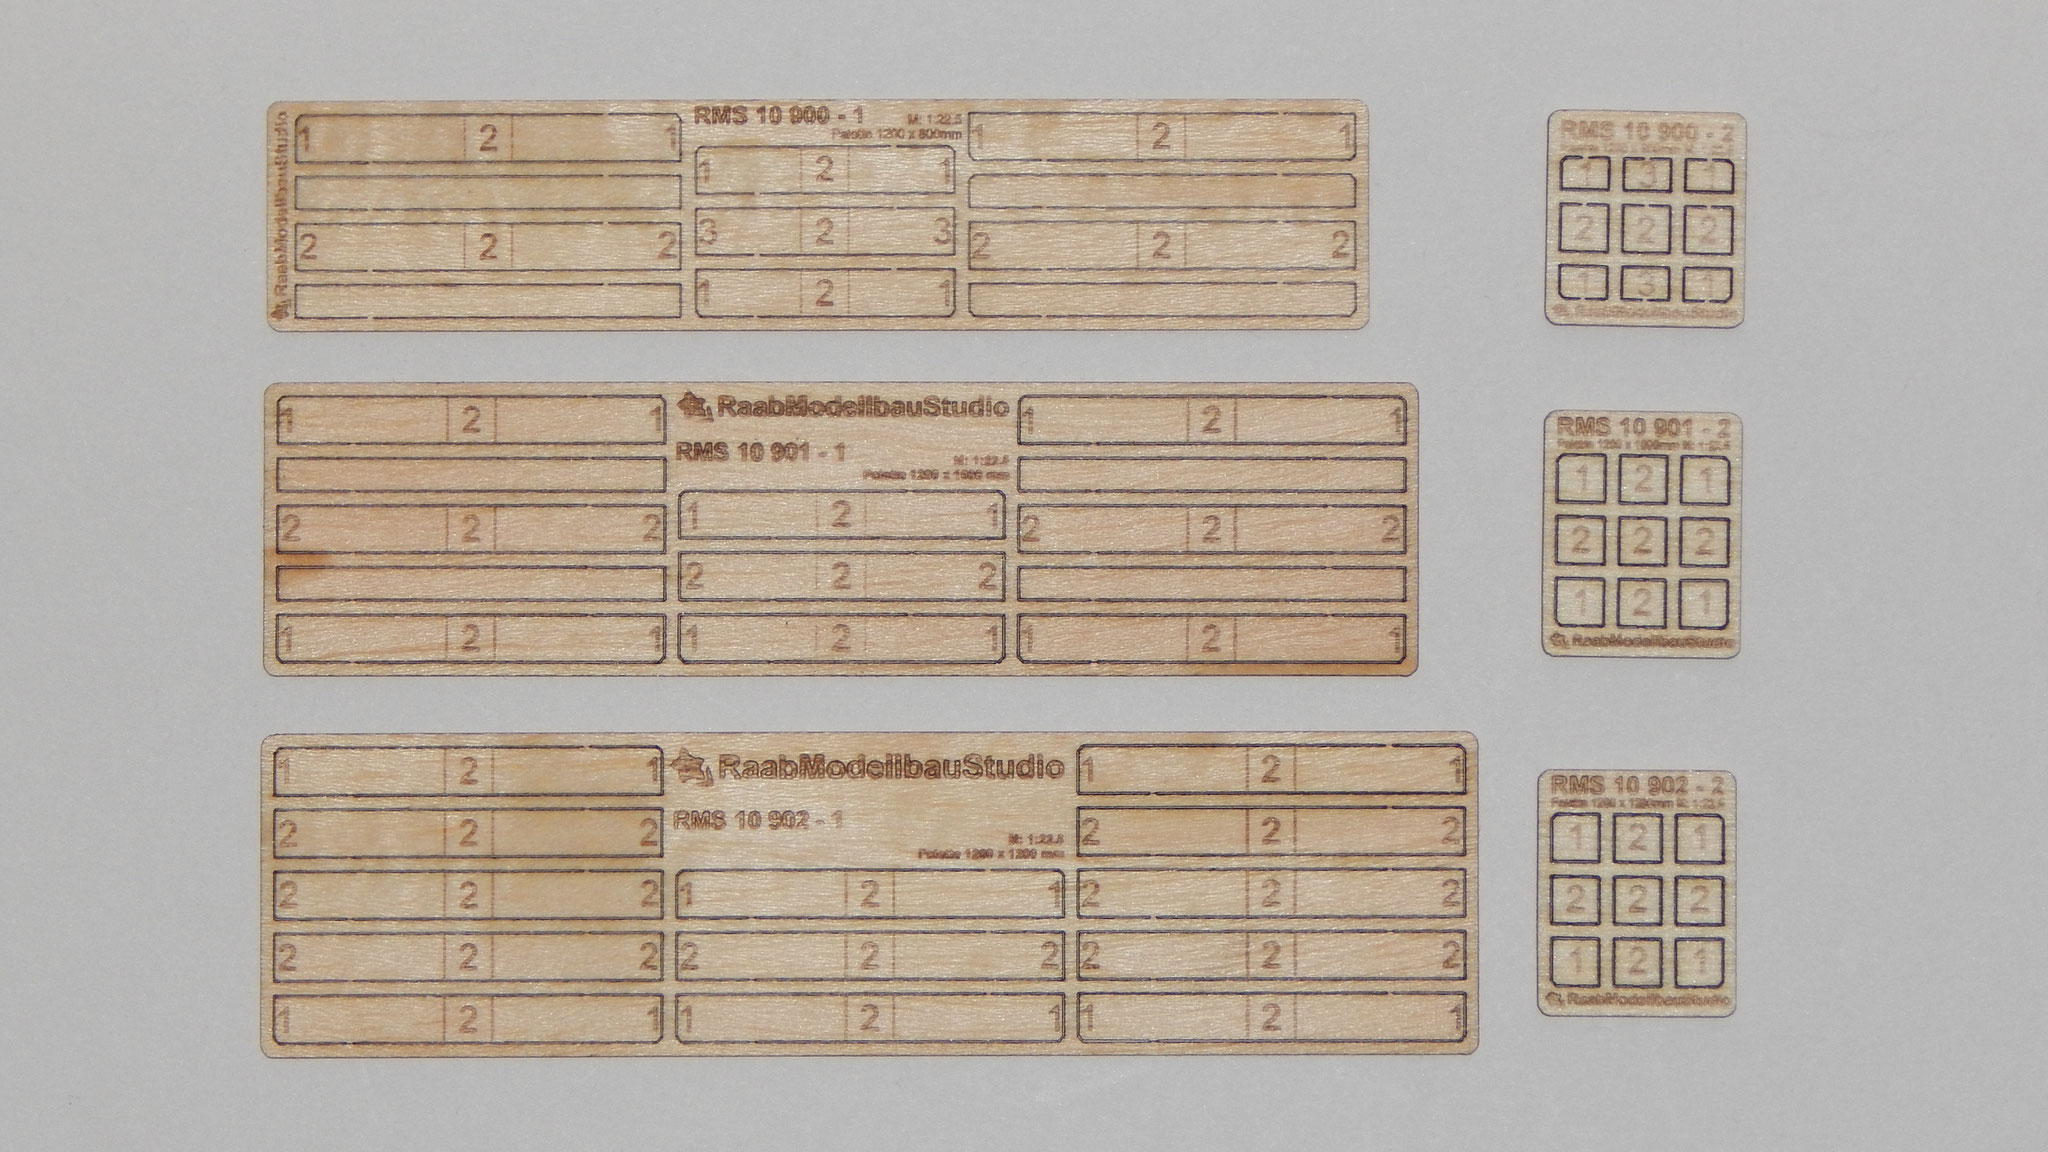 RaabModellbauStudio
RMS 10 900 - 1
M: 1:22.5
Palette 1200 x 800mm
1 2 1
2 2 2
1 2 1
3 2 3
1 2 1
1 2 1
2 2 2
RMS 10 900 - 2
1 3 1
2 2 2
1 3 1
RaabModellbauStudio
RaabModellbauStudio
RMS 10 901 - 1
M: 1:22.5
Palette 1200 x 1000 mm
1 2 1
2 2 2
1 2 1
1 2 1
2 2 2
1 2 1
1 2 1
2 2 2
1 2 1
RMS 10 901 - 2
Palette 1200 x 1000mm M: 1:22.5
1 2 1
2 2 2
1 2 1
RaabModellbauStudio
RaabModellbauStudio
RMS 10 902 - 1
M: 1:22.5
Palette 1200 x 1200 mm
1 2 1
2 2 2
2 2 2
2 2 2
1 2 1
1 2 1
2 2 2
1 2 1
1 2 1
2 2 2
2 2 2
2 2 2
1 2 1
RMS 10 902 - 2
Palette 1200 x 1200mm M: 1:22.5
1 2 1
2 2 2
1 2 1
RaabModellbauStudio